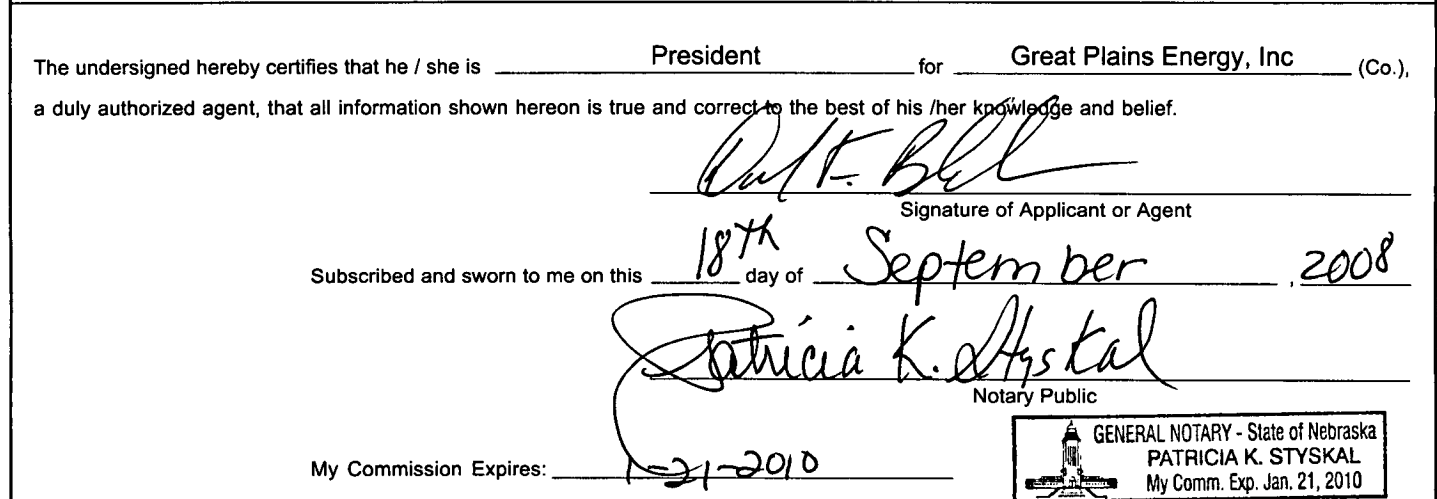 The undersigned hereby certifies that he / she is President for Great Plains Energy, Inc (Co.),
a duly authorized agent, that all information shown hereon is true and correct to the best of his /her knowledge and belief.
Signature of Applicant or Agent
Subscribed and sworn to me on this 18th day of September , 2008
Patricia K. Styskal
Notary Public
GENERAL NOTARY - State of Nebraska
PATRICIA K. STYSKAL
My Comm. Exp. Jan. 21, 2010
My Commission Expires: 1-21-2010